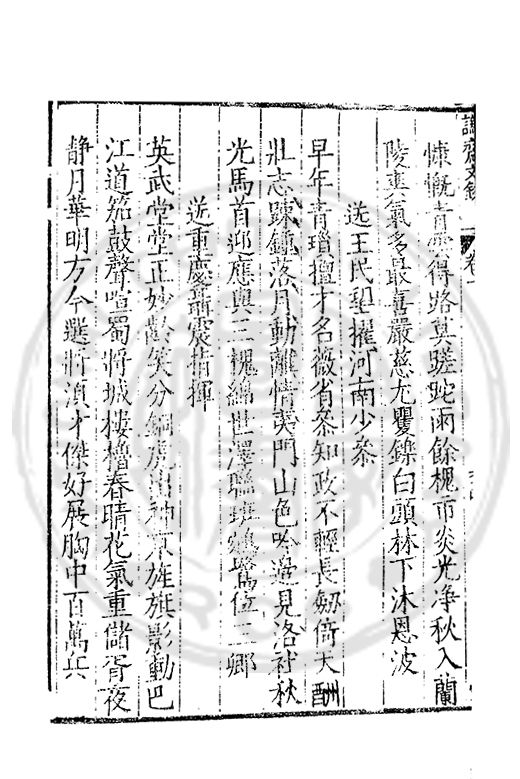 慷慨青雲得路莫蹉跎雨餘槐市炎光净秋入蘭
陵爽氣多最喜嚴慈尤矍鑠白頭林下沐恩波
送王民望擢河南少叅
早年青瑣擅才名薇省叅知政不輕長劒倚天酬
壯志踈鍾落月動離情夷門山色吟邉見洛社秋
光馬首迎應與三槐綿世澤聯班鵷鷺位三卿
送重慶聶震指揮
英武堂堂正妙齡笑分銅虎出神京旌旗影動巴
江道笳鼓聲喧蜀將城樓櫓春晴花氣重儲胥夜
静月華明方今選將湏才傑好展胸中百萬兵